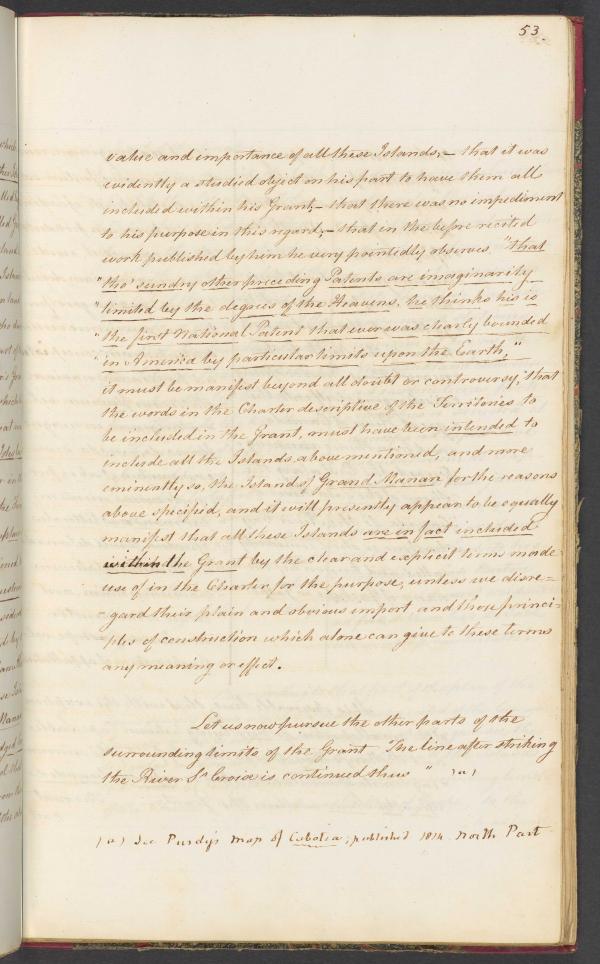 53.
value and importance of all these Islands, — that it was
evidently a studied object on his part to have them all
included within his Grant, — that there was no impediment
to his purpose in this regard, — that in the before recited
work published by him he very pointedly observes "that
"tho' sundry other preceding Patents are imaginarily
"limited by the degrees of the Heavens, he thinks his is
"the first National Patent that ever was clearly bounded
"in America by particular limits upon the Earth,"
it must be manifest beyond all doubt or controversy, that
the words in the Charter descriptive of the Territories to
be included in the Grant, must have been intended to
include all the Islands above mentioned, and more
eminently so, the Island of Grand Manan for the reasons
above specified, and it will presently appear to be equally
manifest that all these Islands are in fact included
within the Grant by the clear and explicit terms made
use of in the Charter for the purpose, unless we disre=
gard their plain and obvious import and those princi=
ples of construction which alone can give to these terms
any meaning or effect.
Let us now pursue the other parts of the
surrounding limits of the Grant The line after striking
the River St Croix is continued thus " (a)
(a) See Purdy's Map of Cabotia, published 1814 North Part